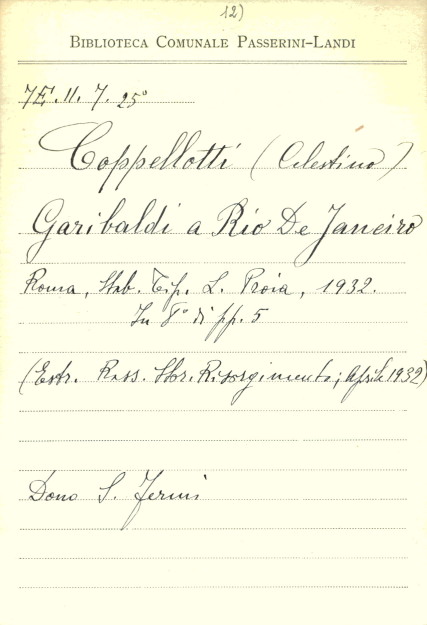 12)
BIBLIOTECA COMUNALE PASSERINI-LANDI
7E. 11. 7. 25°
Coppellotti (Celestino)
Garibaldi a Rio De Janeiro
Roma, Stab. Tip. L. Proia, 1932.
In 8° di pp. 5
(Estr. Rass. Stor. Risorgimento; Aprile 1932)
Dono S. Fermi